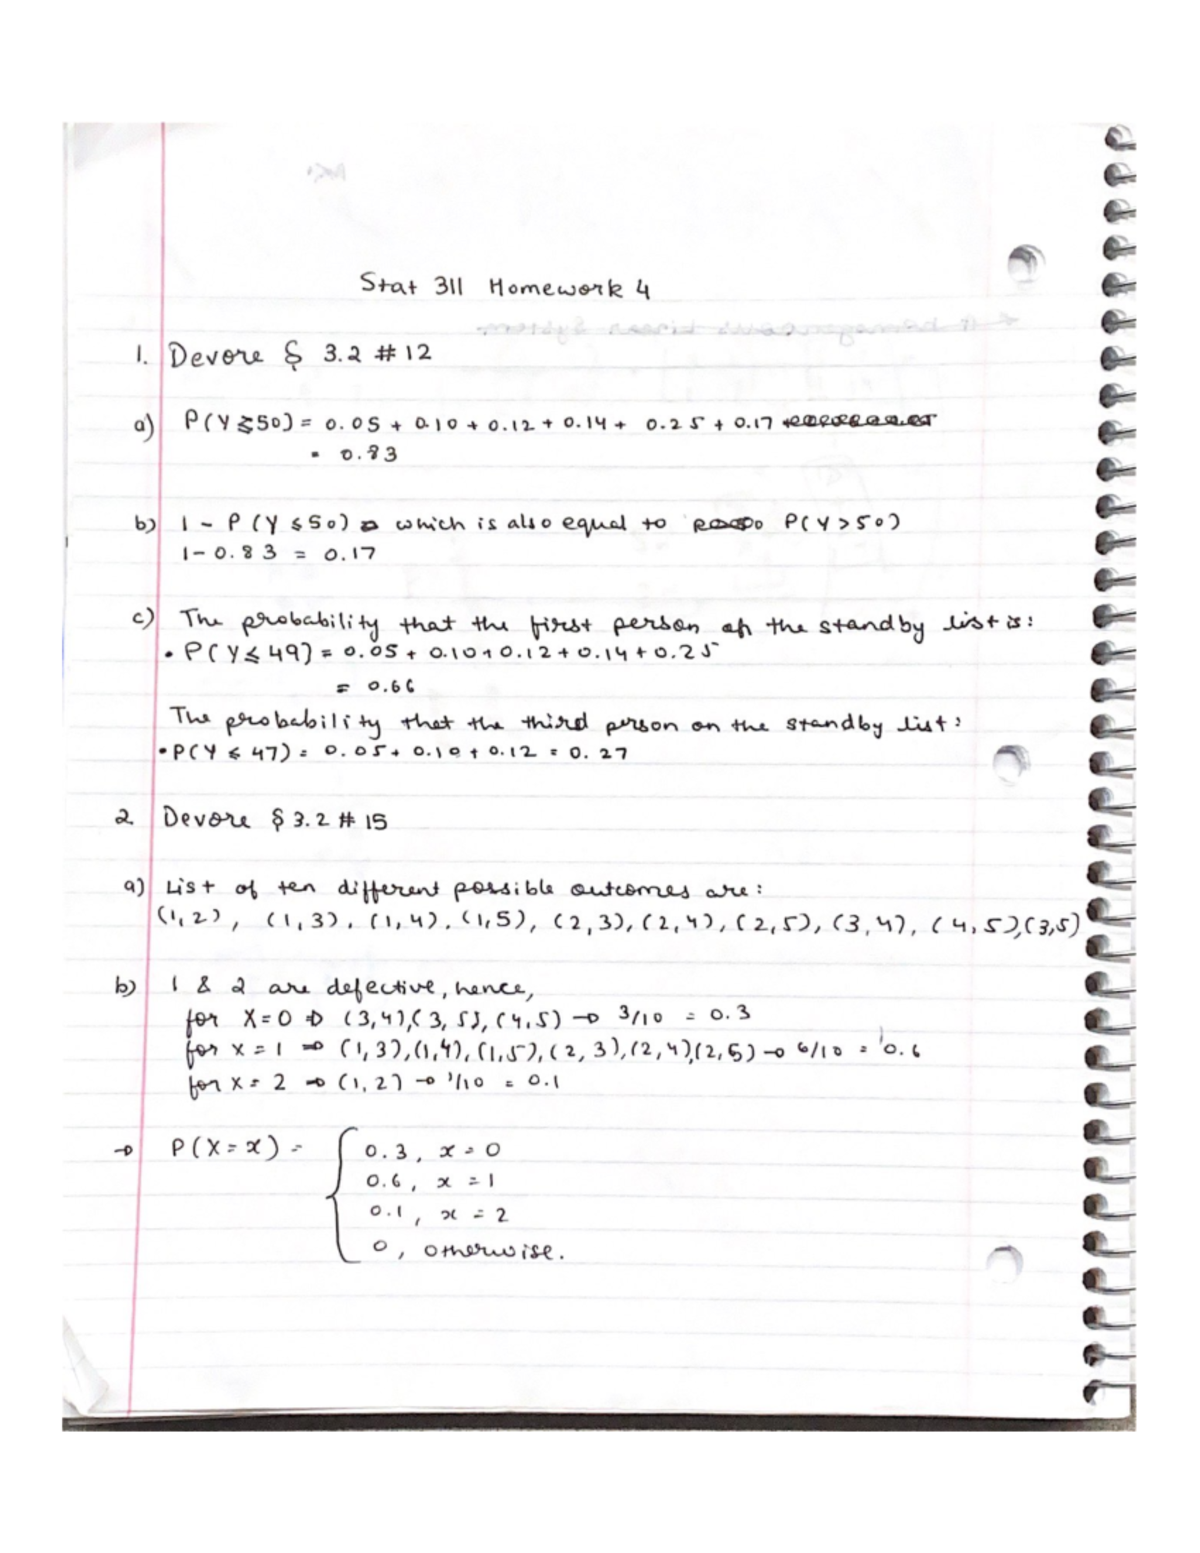 Stat 311 Homework 4
1. Devore § 3.2 # 12
a) P(Y ≤ 50) = 0.05 + 0.10 + 0.12 + 0.14 + 0.25 + 0.17
= 0.83
b) 1 - P(Y ≤ 50) which is also equal to P(Y > 50)
1 - 0.83 = 0.17
c) The probability that the first person on the standby list is:
• P(Y ≤ 49) = 0.05 + 0.10 + 0.12 + 0.14 + 0.25
= 0.66
The probability that the third person on the standby list:
• P(Y ≤ 47) = 0.05 + 0.10 + 0.12 = 0.27
2. Devore § 3.2 # 15
a) List of ten different possible outcomes are:
(1,2), (1,3), (1,4), (1,5), (2,3), (2,4), (2,5), (3,4), (4,5), (3,5)
b) 1 & 2 are defective, hence,
for X = 0 ⇒ (3,4), (3,5), (4,5) → 3/10 = 0.3
for x = 1 ⇒ (1,3), (1,4), (1,5), (2,3), (2,4), (2,5) → 6/10 = 0.6
for x = 2 → (1,2) → 1/10 = 0.1
→ P(X = x) = { 0.3, x = 0
0.6, x = 1
0.1, x = 2
0, otherwise.